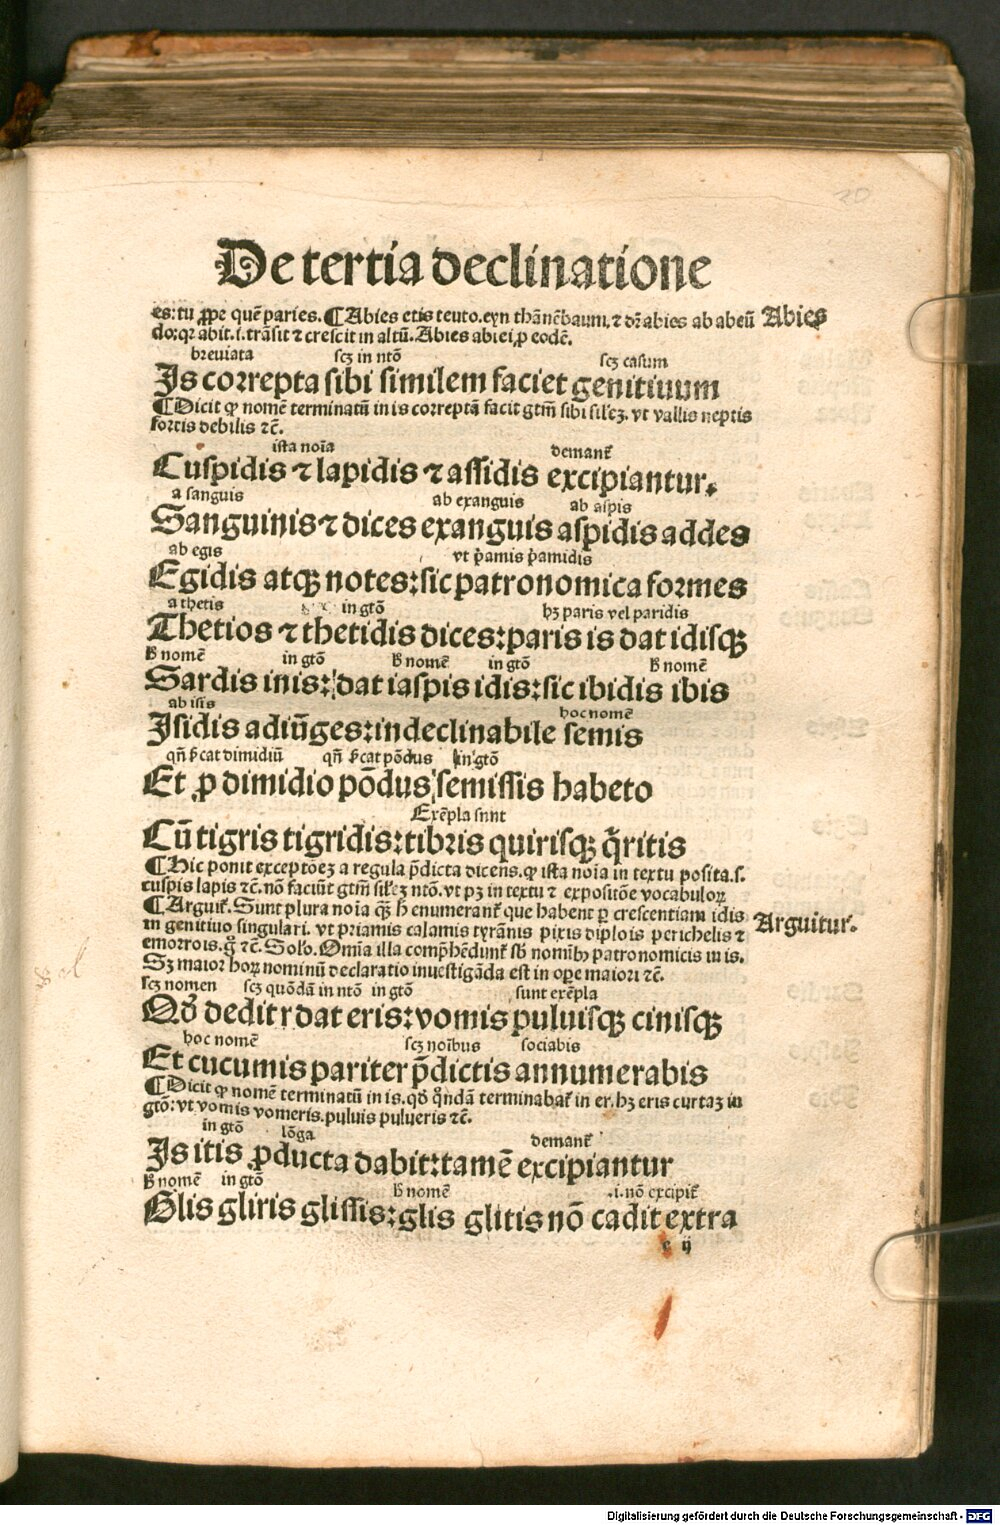 20
De tertia declinatione
es: tu ꝓpe quē paries. ¶ Abies etis teuto. eyn thānēbaum. ⁊ dr̄ abies ab abeū Abies
do: qr abit .i. trāsit ⁊ crescit in altū. Abies abiei, ꝓ eodē.
breviata scꝫ in ntō scꝫ casum
Is correpta sibi similem faciet genitiuum
¶ Dicit ꝙ nomē terminatū in is correptā facit gtm̄ sibi silēꝫ. vt vallis neptis
fortis debilis ⁊c̄.
ista noīa demant᷑
Cuspidis ⁊ lapidis ⁊ assidis excipiantur.
a sanguis ab exanguis ab aspis
Sanguinis ⁊ dices exanguis aspidis addes
ab egis vt p̄amis p̄amidis
Egidis atqꝫ notes: sic patronomica formes
a thetis in gtō hꝫ paris vel paridis
Thetios ⁊ thetidis dices: paris is dat idisqꝫ
h̄ nomē in gtō h̄ nomē in gtō h̄ nomē
Sardis inis: dat iaspis idis: sic ibidis ibis
ab isis hoc nomē
Isidis adiūges: indeclinabile semis
qn̄ s̄cat dimidiū qn̄ s̄cat pōdus in gtō
Et ꝓ dimidio pōdus semissis habeto
Exēpla sunt
Cū tigris tigridis: tibris quirisqꝫ q̄ritis
¶ Hic ponit exceptōeꝫ a regula p̄dicta dicens. ꝙ ista noīa in textu posita .s.
cuspis lapis ⁊c̄. nō faciūt gtm̄ silēꝫ ntō. vt pꝫ in textu ⁊ expositōe vocabuloꝝ
¶ Arguit᷑. Sunt plura noīa qꝫ h̄ enumerant᷑ que habent ꝑ crescentiam idis Arguitur.
in genitiuo singulari. vt priamis calamis tyrānis pixis diplois perichelis ⁊
emorrois. g̊ ⁊c̄. Solo. Om̄ia illa comp̄hēdunt᷑ sb̄ nomībꝫ patronomicis in is.
Sꝫ maior hoꝝ nominū declaratio inuestigāda est in oꝑe maiori ⁊c̄.
scꝫ nomen scꝫ quōdā in ntō in gtō sunt exēpla
Qd̄ dedit r dat eris: vomis puluisqꝫ cinisqꝫ
hoc nomē scꝫ noībus sociabis
Et cucumis pariter p̄dictis annumerabis
¶ Dicit ꝙ nomē terminatū in is. qd̄ q̄ndā terminabat᷑ in er. hꝫ eris curtaꝫ in
gtō: vt vomis vomeris. puluis pulueris ⁊c̄.
in gtō lōga demant᷑
Is itis ꝓducta dabit: tamē excipiantur
h̄ nomē in gtō h̄ nomē .i. nō excipit᷑
Glis gliris glissis: glis glitis nō cadit extra
e ij
Digitalisierung gefördert durch die Deutsche Forschungsgemeinschaft - DFG